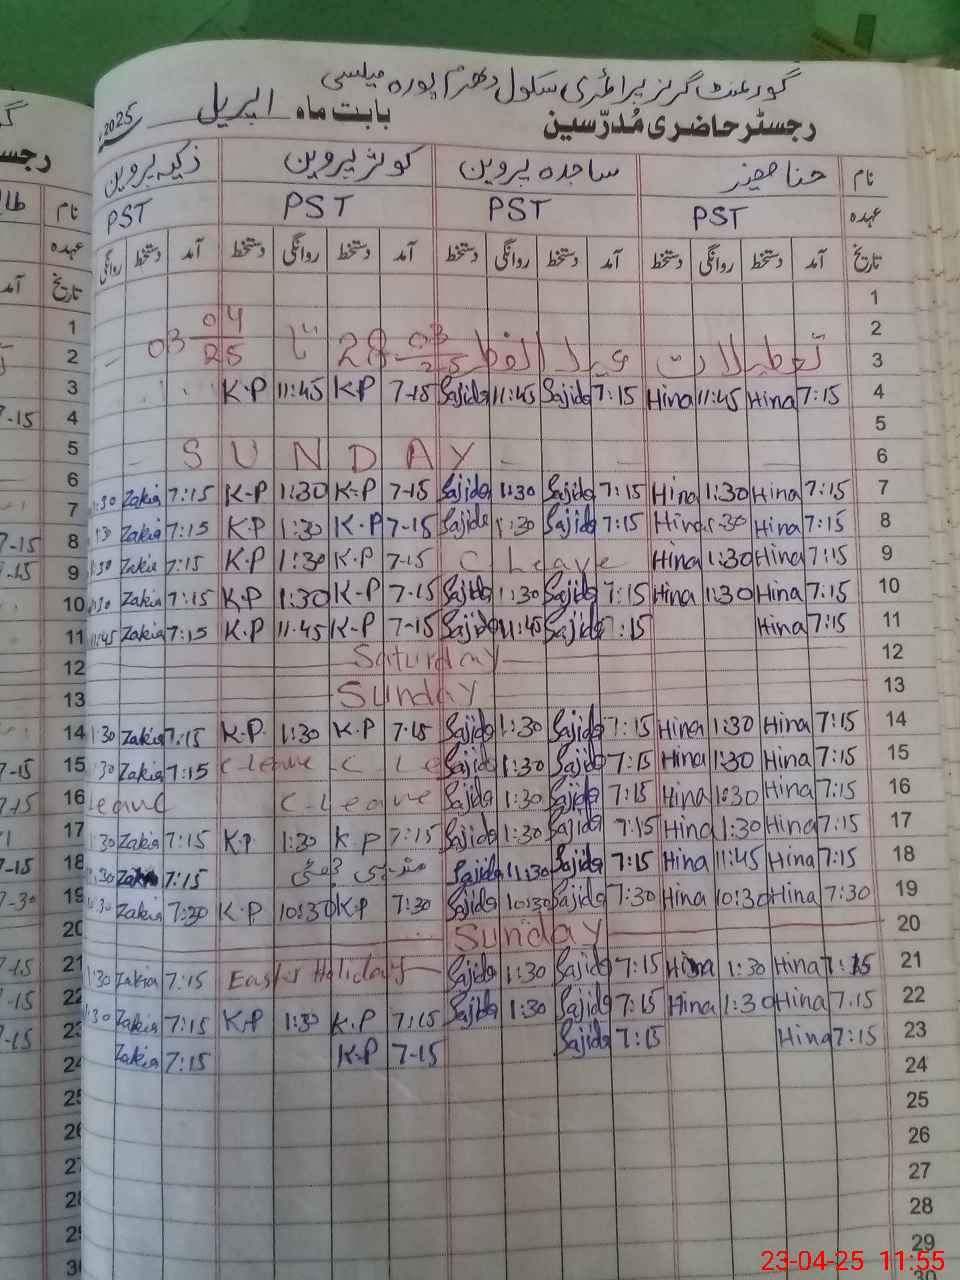 گورنمنٹ گرلز پرائمری سکول دھرم پورہ میلسی
رجسٹر حاضری مُدرّسین بابت ماہ اپریل 2025
نام حنا صفدر ساجدہ پروین کوثر پروین ذکیہ پروین
عہدہ PST PST PST PST
تاریخ آمد دستخط روانگی دستخط آمد دستخط روانگی دستخط آمد دستخط روانگی دستخط آمد دستخط روانگی
1
2
3 تعطیلات عید الفطر 28 03 25 تا 03 04 25
K.P 11:45 K.P 7-15 Sajida 11:45 Sajida 7:15 Hina 11:45 Hina 7:15 4
5
SUNDAY 6
1:30 Zakia 7:15 K-P 1:30 K-P 7-15 Sajida 1:30 Sajida 7:15 Hina 1:30 Hina 7:15 7
1:30 Zakia 7:15 K.P 1:30 K.P 7-15 Sajida 1:30 Sajida 7:15 Hina 1:30 Hina 7:15 8
1:30 Zakia 7:15 K.P 1:30 K.P 7-15 C Leave Hina 1:30 Hina 7:15 9
1:30 Zakia 7:15 K.P 1:30 K-P 7-15 Sajida 1:30 Sajida 7:15 Hina 1:30 Hina 7:15 10
11:45 Zakia 7:15 K.P 11:45 K-P 7-15 Sajida 11:45 Sajida 7:15 Hina 7:15 11
Saturday 12
Sunday 13
1:30 Zakia 7:15 K.P. 1:30 K.P 7-15 Sajida 1:30 Sajida 7:15 Hina 1:30 Hina 7:15 14
1:30 Zakia 7:15 C Leave C Le Sajida 1:30 Sajida 7:15 Hina 1:30 Hina 7:15 15
Leave C-Leave Sajida 1:30 Sajida 7:15 Hina 1:30 Hina 7:15 16
1:30 Zakia 7:15 K.P 1:30 K.P 7:15 Sajida 1:30 Sajida 7:15 Hina 1:30 Hina 7:15 17
Zakia 7:15 مذہبی چھٹی Sajida 11:30 Sajida 7:15 Hina 11:45 Hina 7:15 18
10:30 Zakia 7:30 K.P 10:30 K.P 7:30 Sajida 10:30 Sajida 7:30 Hina 10:30 Hina 7:30 19
Sunday 20
1:30 Zakia 7:15 Easter Holiday Sajida 1:30 Sajida 7:15 Hina 1:30 Hina 7:15 21
1:30 Zakia 7:15 K.P 1:30 K.P 7:15 Sajida 1:30 Sajida 7:15 Hina 1:30 Hina 7:15 22
Zakia 7:15 K-P 7-15 Sajida 7:15 Hina 7:15 23
24
25
26
27
28
29
23-04-25 11:55